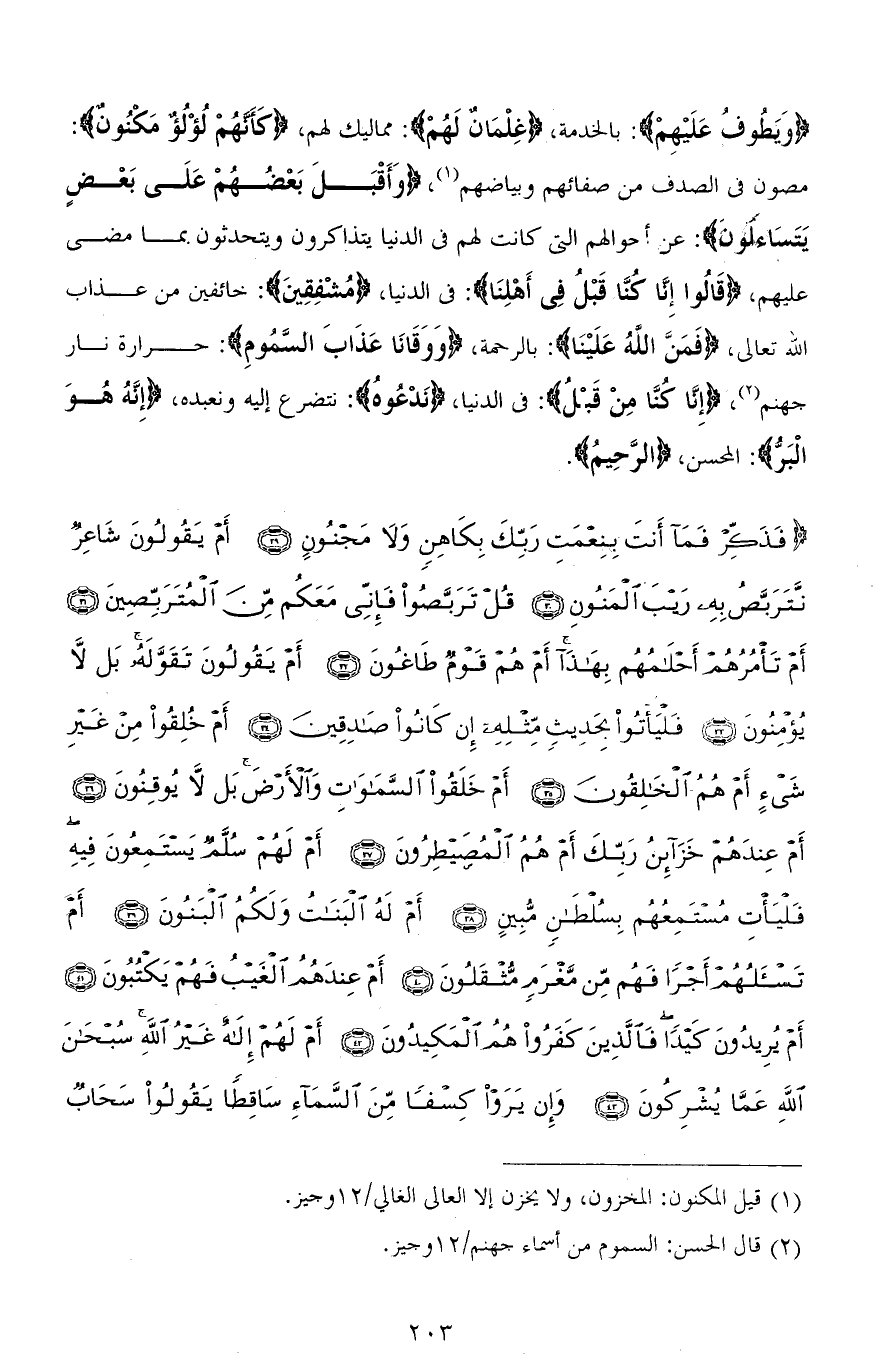 ﴿وَيَطُوفُ عَلَيْهِمْ﴾: بالخدمة، ﴿غِلْمَانٌ لَهُمْ﴾: مماليك لهم، ﴿كَأَنَّهُمْ لُؤْلُؤٌ مَكْنُونٌ﴾:
مصون فى الصدف من صفائهم وبياضهم(١)، ﴿وَأَقْبَلَ بَعْضُهُمْ عَلَى بَعْضٍ
يَتَسَاءلُونَ﴾: عن أحوالهم التى كانت لهم فى الدنيا يتذاكرون ويتحدثون بما مضى
عليهم، ﴿قَالُوا إِنَّا كُنَّا قَبْلُ فِى أَهْلِنَا﴾: فى الدنيا، ﴿مُشْفِقِينَ﴾: خائفين من عذاب
الله تعالى، ﴿فَمَنَّ اللَّهُ عَلَيْنَا﴾: بالرحمة، ﴿وَوَقَانَا عَذَابَ السَّمُومِ﴾: حرارة نار
جهنم(٢)، ﴿إِنَّا كُنَّا مِنْ قَبْلُ﴾: فى الدنيا، ﴿نَدْعُوهُ﴾: نتضرع إليه ونعبده، ﴿إِنَّهُ هُوَ
الْبَرُّ﴾: المحسن، ﴿الرَّحِيمُ﴾.
﴿ فَذَكِّرْ فَمَآ أَنتَ بِنِعْمَتِ رَبِّكَ بِكَاهِنٍ وَلَا مَجْنُونٍ ٢٩ أَمْ يَقُولُونَ شَاعِرٌ
نَّتَرَبَّصُ بِهِۦ رَيْبَ ٱلْمَنُونِ ٣٠ قُلْ تَرَبَّصُوا۟ فَإِنِّى مَعَكُم مِّنَ ٱلْمُتَرَبِّصِينَ ٣١
أَمْ تَأْمُرُهُمْ أَحْلَـٰمُهُم بِهَـٰذَآ ۚ أَمْ هُمْ قَوْمٌ طَاغُونَ ٣٢ أَمْ يَقُولُونَ تَقَوَّلَهُۥ ۚ بَل لَّا
يُؤْمِنُونَ ٣٣ فَلْيَأْتُوا۟ بِحَدِيثٍ مِّثْلِهِۦٓ إِن كَانُوا۟ صَـٰدِقِينَ ٣٤ أَمْ خُلِقُوا۟ مِنْ غَيْرِ
شَىْءٍ أَمْ هُمُ ٱلْخَـٰلِقُونَ ٣٥ أَمْ خَلَقُوا۟ ٱلسَّمَـٰوَٰتِ وَٱلْأَرْضَ ۚ بَل لَّا يُوقِنُونَ ٣٦
أَمْ عِندَهُمْ خَزَآئِنُ رَبِّكَ أَمْ هُمُ ٱلْمُصَۣيْطِرُونَ ٣٧ أَمْ لَهُمْ سُلَّمٌ يَسْتَمِعُونَ فِيهِ ۖ
فَلْيَأْتِ مُسْتَمِعُهُم بِسُلْطَـٰنٍ مُّبِينٍ ٣٨ أَمْ لَهُ ٱلْبَنَـٰتُ وَلَكُمُ ٱلْبَنُونَ ٣٩ أَمْ
تَسْـَٔلُهُمْ أَجْرًا فَهُم مِّن مَّغْرَمٍ مُّثْقَلُونَ ٤٠ أَمْ عِندَهُمُ ٱلْغَيْبُ فَهُمْ يَكْتُبُونَ ٤١
أَمْ يُرِيدُونَ كَيْدًا ۖ فَٱلَّذِينَ كَفَرُوا۟ هُمُ ٱلْمَكِيدُونَ ٤٢ أَمْ لَهُمْ إِلَـٰهٌ غَيْرُ ٱللَّهِ ۚ سُبْحَـٰنَ
ٱللَّهِ عَمَّا يُشْرِكُونَ ٤٣ وَإِن يَرَوْا۟ كِسْفًا مِّنَ ٱلسَّمَآءِ سَاقِطًا يَقُولُوا۟ سَحَابٌ
(١) قيل المكنون: المخزون، ولا يخزن إلا العالى الغالي/١٢وجيز.
(٢) قال الحسن: السموم من أسماء جهنم/١٢وجيز.
٢٠٣